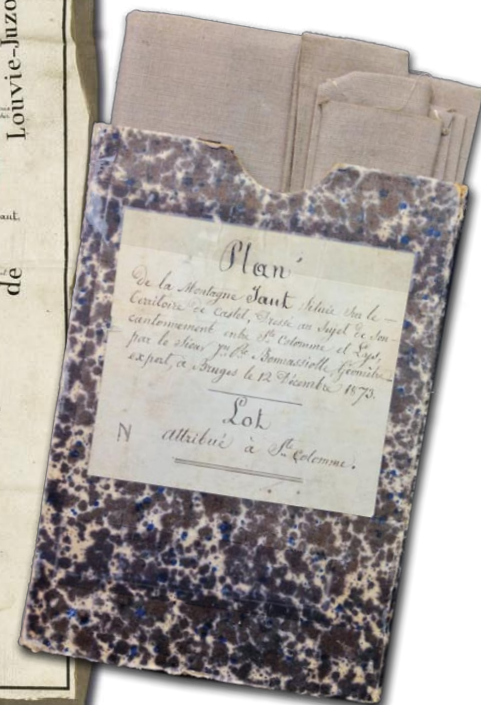 Louvie-Juzo
de
aut.
Plan
De la Montagne Jaut située sur le
territoire de Castet, Dressé au Sujet de Son
cantonnement entre Ste Colomme, et Lys,
par le Sieur Jn Bte Bonnassiolle, Géomètre
expert, à Bruges le 12 Décembre 1873.
Lot
N attribué à Ste Colomme.